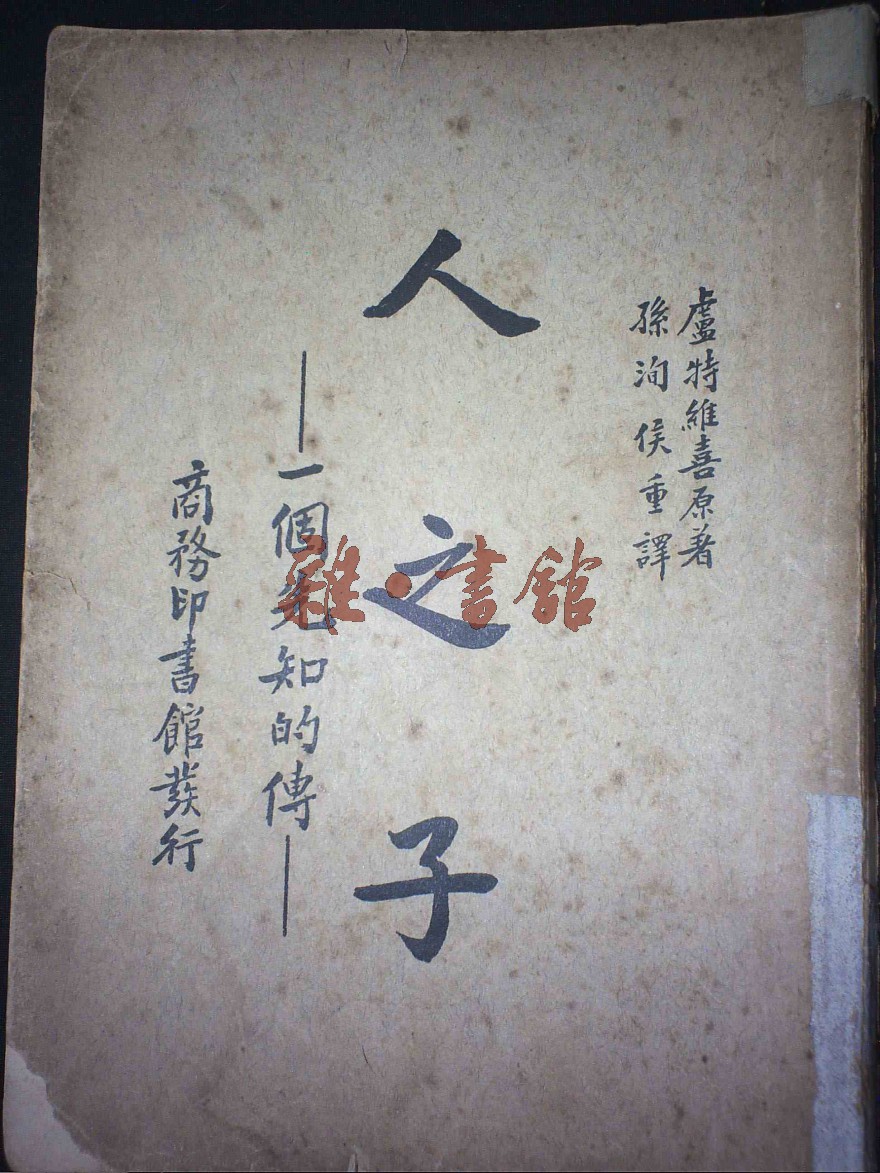 盧特維喜原著
孫洵侯重譯
人之子
——一個先知的傳——
商務印書館發行
雜·書館